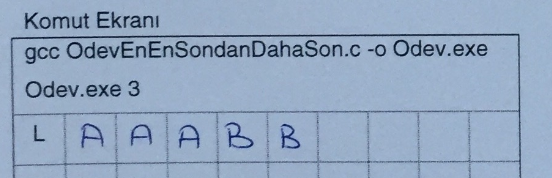 Komut Ekranı
gcc OdevEnEnSondanDahaSon.c -o Odev.exe
Odev.exe 3
L A A A B B